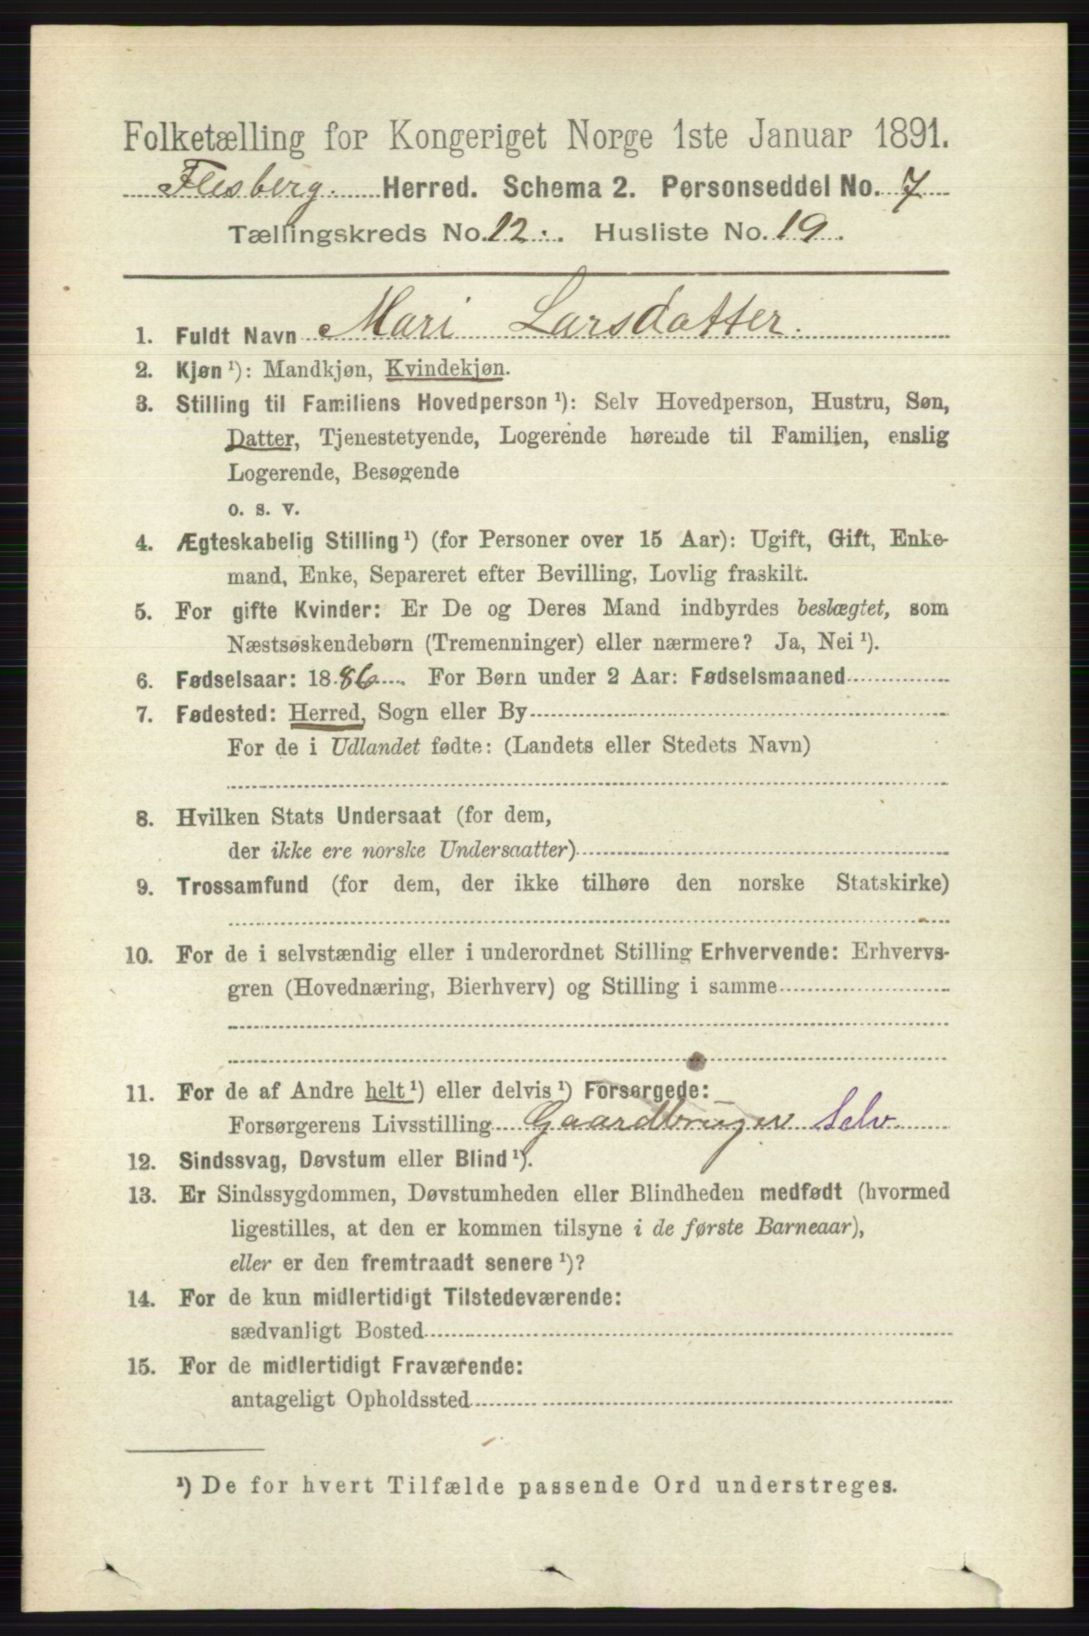 Folketælling for Kongeriget Norge 1ste Januar 1891.
Flesberg. Herred. Schema 2. Personseddel No. 7
Tællingskreds No. 12. Husliste No. 19.
1. Fuldt Navn Mari Larsdatter.
2. Kjøn ¹): Mandkjøn, Kvindekjøn.
3. Stilling til Familiens Hovedperson ¹): Selv Hovedperson, Hustru, Søn,
Datter, Tjenestetyende, Logerende hørende til Familien, enslig
Logerende, Besøgende
o. s. v.
4. Ægteskabelig Stilling ¹) (for Personer over 15 Aar): Ugift, Gift, Enke-
mand, Enke, Separeret efter Bevilling, Lovlig fraskilt.
5. For gifte Kvinder: Er De og Deres Mand indbyrdes beslægtet, som
Næstsøskendebørn (Tremenninger) eller nærmere? Ja, Nei ¹).
6. Fødselsaar: 1886. For Børn under 2 Aar: Fødselsmaaned
7. Fødested: Herred, Sogn eller By
For de i Udlandet fødte: (Landets eller Stedets Navn)
8. Hvilken Stats Undersaat (for dem,
der ikke ere norske Undersaatter)
9. Trossamfund (for dem, der ikke tilhøre den norske Statskirke)
10. For de i selvstændig eller i underordnet Stilling Erhvervende: Erhvervs-
gren (Hovednæring, Bierhverv) og Stilling i samme
11. For de af Andre helt ¹) eller delvis ¹) Forsørgede:
Forsørgerens Livsstilling Gaardbruger Selv
12. Sindssvag, Døvstum eller Blind ¹).
13. Er Sindssygdommen, Døvstumheden eller Blindheden medfødt (hvormed
ligestilles, at den er kommen tilsyne i de første Barneaar),
eller er den fremtraadt senere ¹)?
14. For de kun midlertidigt Tilstedeværende:
sædvanligt Bosted
15. For de midlertidigt Fraværende:
antageligt Opholdssted
¹) De for hvert Tilfælde passende Ord understreges.